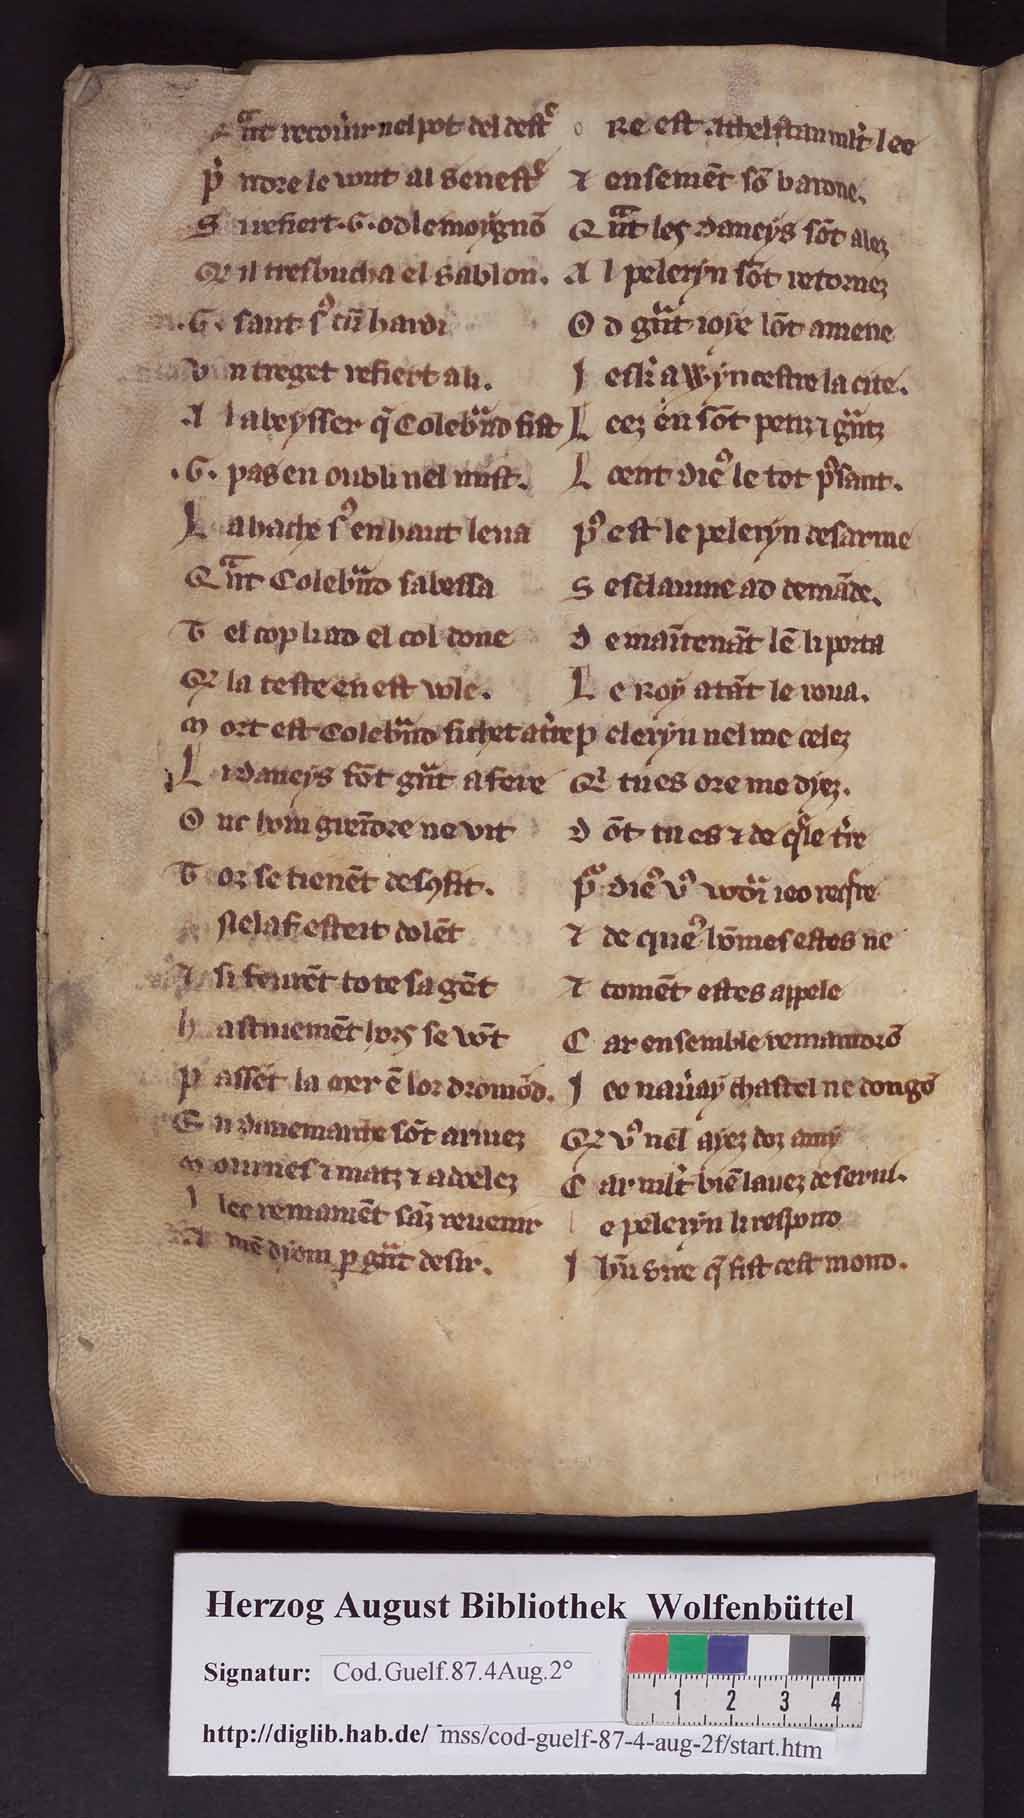 Q ͣnt recoũir nel pot del destᵉ
p̓ ndre le vout al senestᵉ
S i refiert .G. od le moygnõ
Q̃ il tresbucha el sablon.
.G. saut sᵒ cũ hardi
v n treget refiert ali.
A l abeysser q̃ Colebᵃnd fist
.G. pas en oubli nel mist.
L a hache sᵒ en haut leua
Q ͣnt Colebᵃnd sabessa
T el cop li ad el col done
Q̃ la teste en est vole.
M ort est Colebᵃnd fichet at̓re
L i daneys sõt gᵃnt a fere
O nc hom greiñdre ne vit
T oz se tienẽt desɔfit.
Anelaf esteit dolẽt
⁊ si feurẽt tote sa gẽt
h astiuemẽt lors se võt
P assẽt la mer ẽ lor dromõd.
E n danemarche sõt ariuez
M ournes ⁊ matz ⁊ adolez
I lec remainẽt sãz reuenir
Re est Athelstan ml̓t lee
⁊ ensemẽt sõ barone.
Q ͣnt les daneys sõt alez
A l peleryn sõt retornez
O d gᵃnt ioye lõt amene
I esk̓ a Wyncestre la cite.
L eez en sõt petiz ⁊ gᵃntz
L oent diẽᵒ le tot p̓sant.
Pᵒ est le peleryn desarme
S esclauine ad demãde.
D e maĩtenãt lẽ li porta
L e Roy atãt le roua.
P eleryn nel me celez
Q̓ tu es ore me dyez.
D õt tu es ⁊ de q̃le t̓re
Pᵃ diẽᵒ vᵒ
⁊ de queᵒ hõmes estes ne
⁊ comẽt estes appele
C ar ensemble remaindrõ
I ce nau̓ay chastel ne dongõ
Q̃ vᵒ nel ayez doz amy
C ar ml̓t biẽ lauez deserui.
L e peleryn li respond
I hũ sire q̃ fist cest mond.
Herzog August Bibliothek Wolfenbüttel
Signatur: Cod.Guelf.87.4Aug.2°
1 2 3 4
http://diglib.hab.de/ mss/cod-guelf-87-4-aug-2f/start.htm